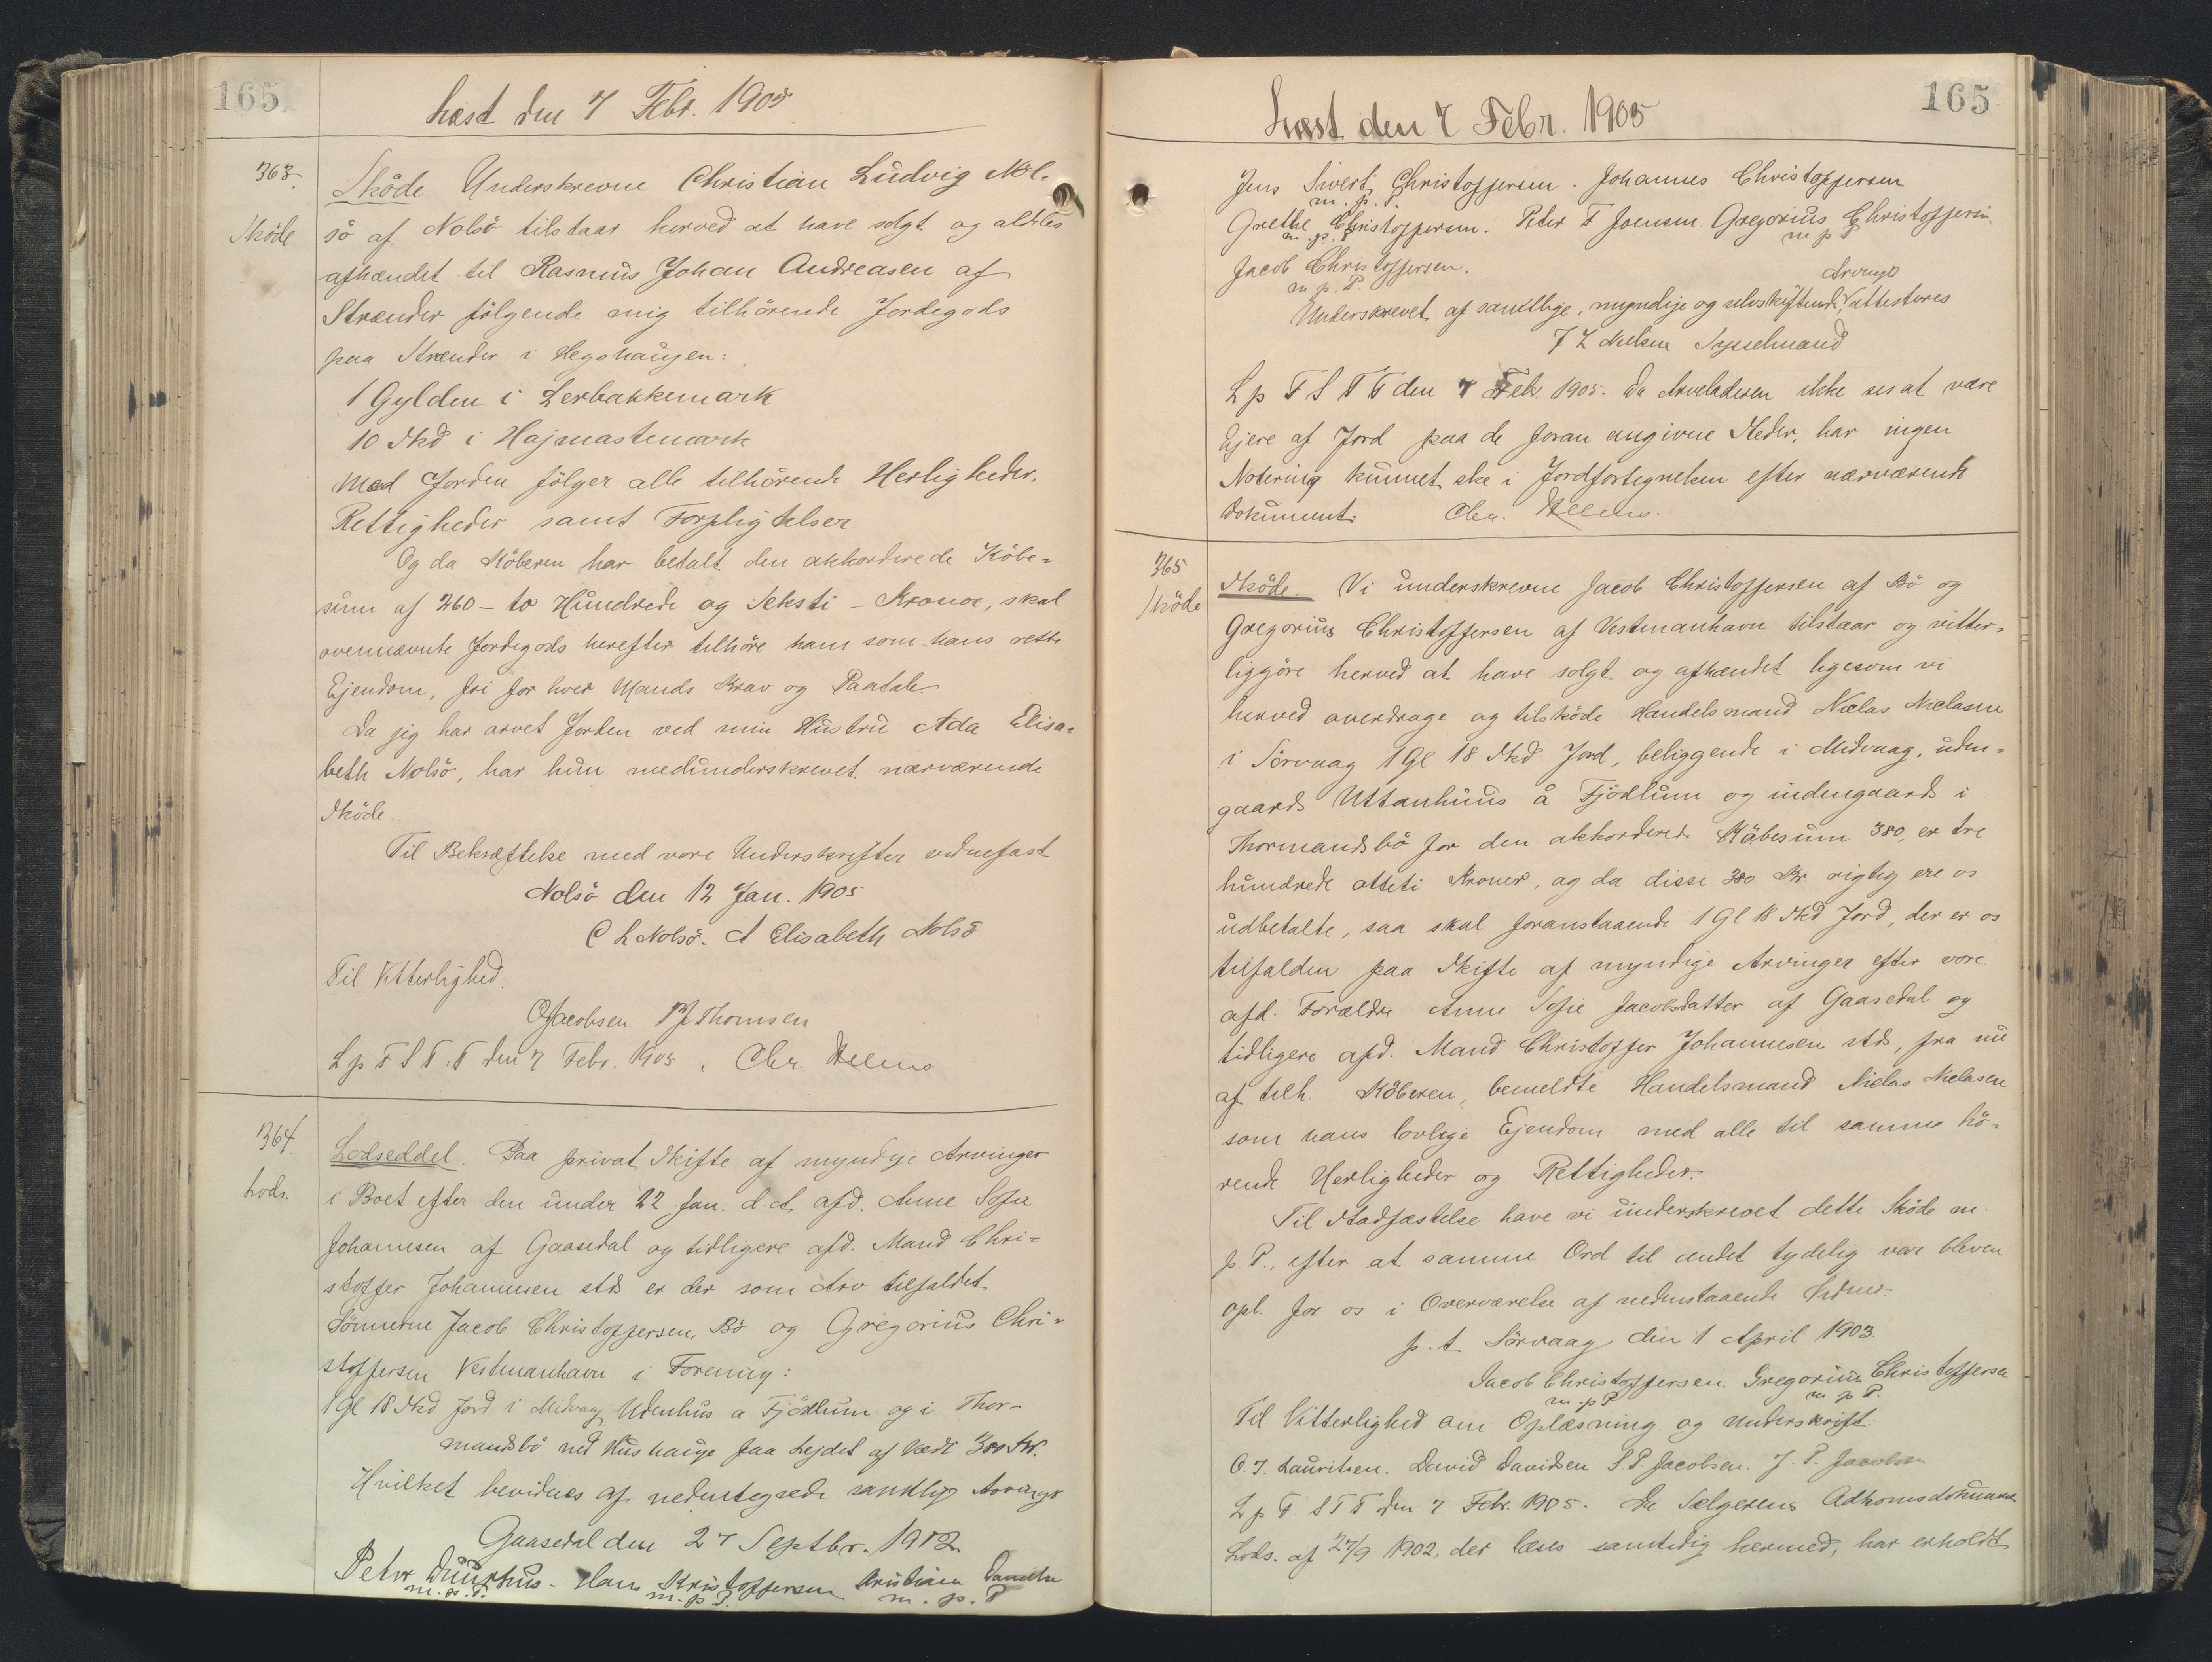 165
Læst den 7 Febr. 1905
363.
Sköde
Sköde Underskrevne Christian Ludvig Nol-
sö af Nolsö tilstaar herved at have solgt og aldeles
afhændet til Rasmus Johan Andreasen af
Strænder følgende mig tilhörende Jordegods
paa Strænder i Hegshaugen:
1 Gylden i Lerbakkemark
10 Skd i Hajmastemark
Med Jorden fölger alle tilhörende Herligheder,
Rettigheder samt Forpligtelser
Og da Köberen har betalt den akkorderede Köbe=
sum af 260 - to Hundrede og Seksti - Kroner, skal
ovennævnte Jordegods herefter tilhöre ham som hans rette
Ejendom, fri for hver Mands Krav og Paatale
Da jeg har arvet Jorden ved min Hustru Ada Elisa=
beth Nolsö, har hun medunderskrevet nærværende
Sköde.
Til Bekræftelse med vore Underskrifter vidnefast
Nolsö den 12 Jan. 1905
C L Nolsö. A Elisabeth Nolsö
Til Vitterlighed.
O Jacobsen P J Thomsen
L p F S T. T den 7 Febr. 1905. Chr.
364.
Lods.
Lodseddel. Paa privat Skifte af myndige Arvinger
i Boet efter den under 22 Jan. d.A. afd. Anne Sofie
Johannesen af Gaasedal og tidligere afd. Mand Chri=
stoffer Johannesen stds er der som Arv tilfaldet
Sönnerne Jacob Christoffersen, Bö og Gregorius Chri=
stoffersen Vestmanhavn i Forening:
1 Gl 18 Skd Jord i Midvaag Udenhus a Fjödlum og i Thor-
mandsbö ned Hushauge faa Lejdet af Værdi 380 Kr.
Hvilket bevidnes af nedentegnede samtlige Arvinger
Gaasedal den 27 Septbr. 1902
Peter Duurhus - Hans Kristoffersen Kristian Danielsen
m. p. P. m. p P. m. p. P
165
Læst den 7 Febr. 1905
Jens Sivert Christoffersen. Johannes Christoffersen
m. p. P.
Grethe Christoffersen. Peter F Joensen. Gregorius Christoffersen
m. p. P m p P
Jacob Christoffersen.
m. p. P. Arvinger
Underskrevet af samtlige, myndige og selvskiftende, attesteres
F L Nielsen Sysselmand
L p F S T T den 7 Feb. 1905. Da Arveladeren ikke ses at være
Ejere af Jord paa de foran angivne Steder, har ingen
Notering kunnet ske i Jordfortegnelsen efter nærværende
Dokument. Chr.
365
Sköde
Sköde. Vi underskrevne Jacob Christoffersen af Bö og
Gregorius Christoffersen af Vestmanhavn tilstaar og vitter=
liggöre herved at have solgt og afhændet ligesom vi
herved overdrage og tilsköde Handelsmand Niclas Niclasen
i Sörvaag 1 Gl 18 Skd Jord, beliggende i Midvaag, uden=
gaards Uttanhuus å Fjödlum og indengaards i
Thormandsbö for den akkorderede Köbesum 380, er tre
hundrede otteti Kroner, og da disse 380 Kr rigtig ere os
udbetalte, saa skal foranstaaende 1 Gl 18 Skd Jord, der er os
tilfalden paa Skifte af myndige Arvinger efter vore
afd. Forældre Anne Sofie Jacobsdatter af Gaasedal og
tidligere afd. Mand Christoffer Johannesen stds, fra nu
af tilh. Köberen, bemeldte Handelsmand Niclas Niclasen
som hans lovlige Ejendom med alle til samme hö=
rende Herligheder og Rettigheder.
Til Stadfæstelse have vi underskrevet dette Sköde m.
p. P., efter at samme Ord til andet tydelig var bleven
opl. for os i Overværelse af nedenstaaende Vidner.
p. t. Sörvaag den 1 April 1903.
Jacob Christoffersen. Gregorius Christoffersen
m. p P m p P.
Til Vitterlighed om Oplæsning og Underskrift.
O. J. Lauritsen. David Davidsen S. P Jacobsen. J. P. Jacobsen
L p F. S T T den 7 Febr. 1905. Da Sælgerens Adkomsdokument
Lods. af 27/9 1902, der læses samtidig hermed, har erholdt